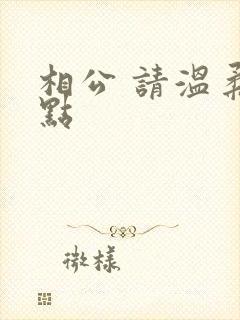 相公 請溫柔
點
微樣